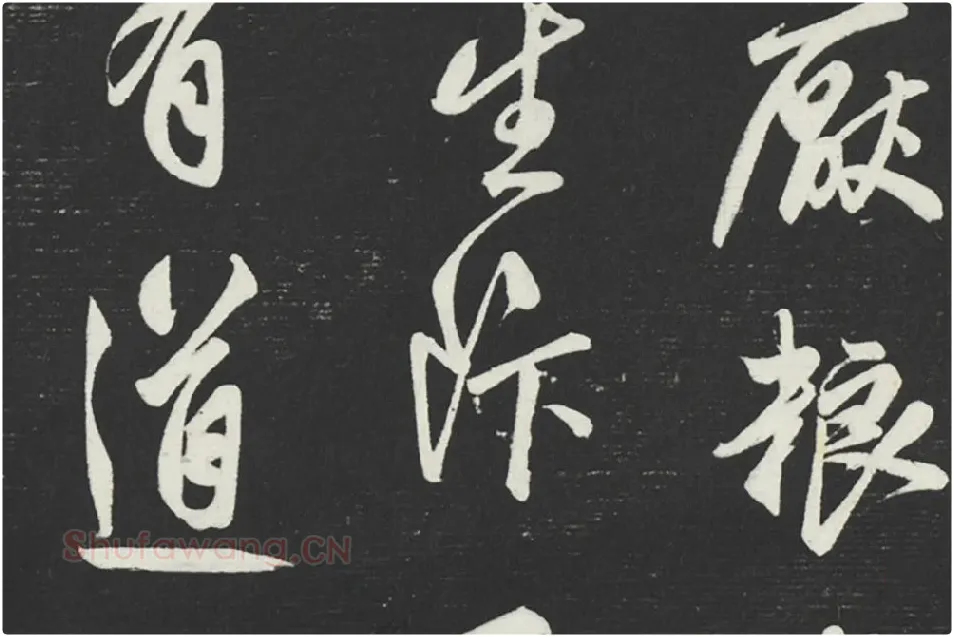 厭粮
生
有道
Shufawang.CN